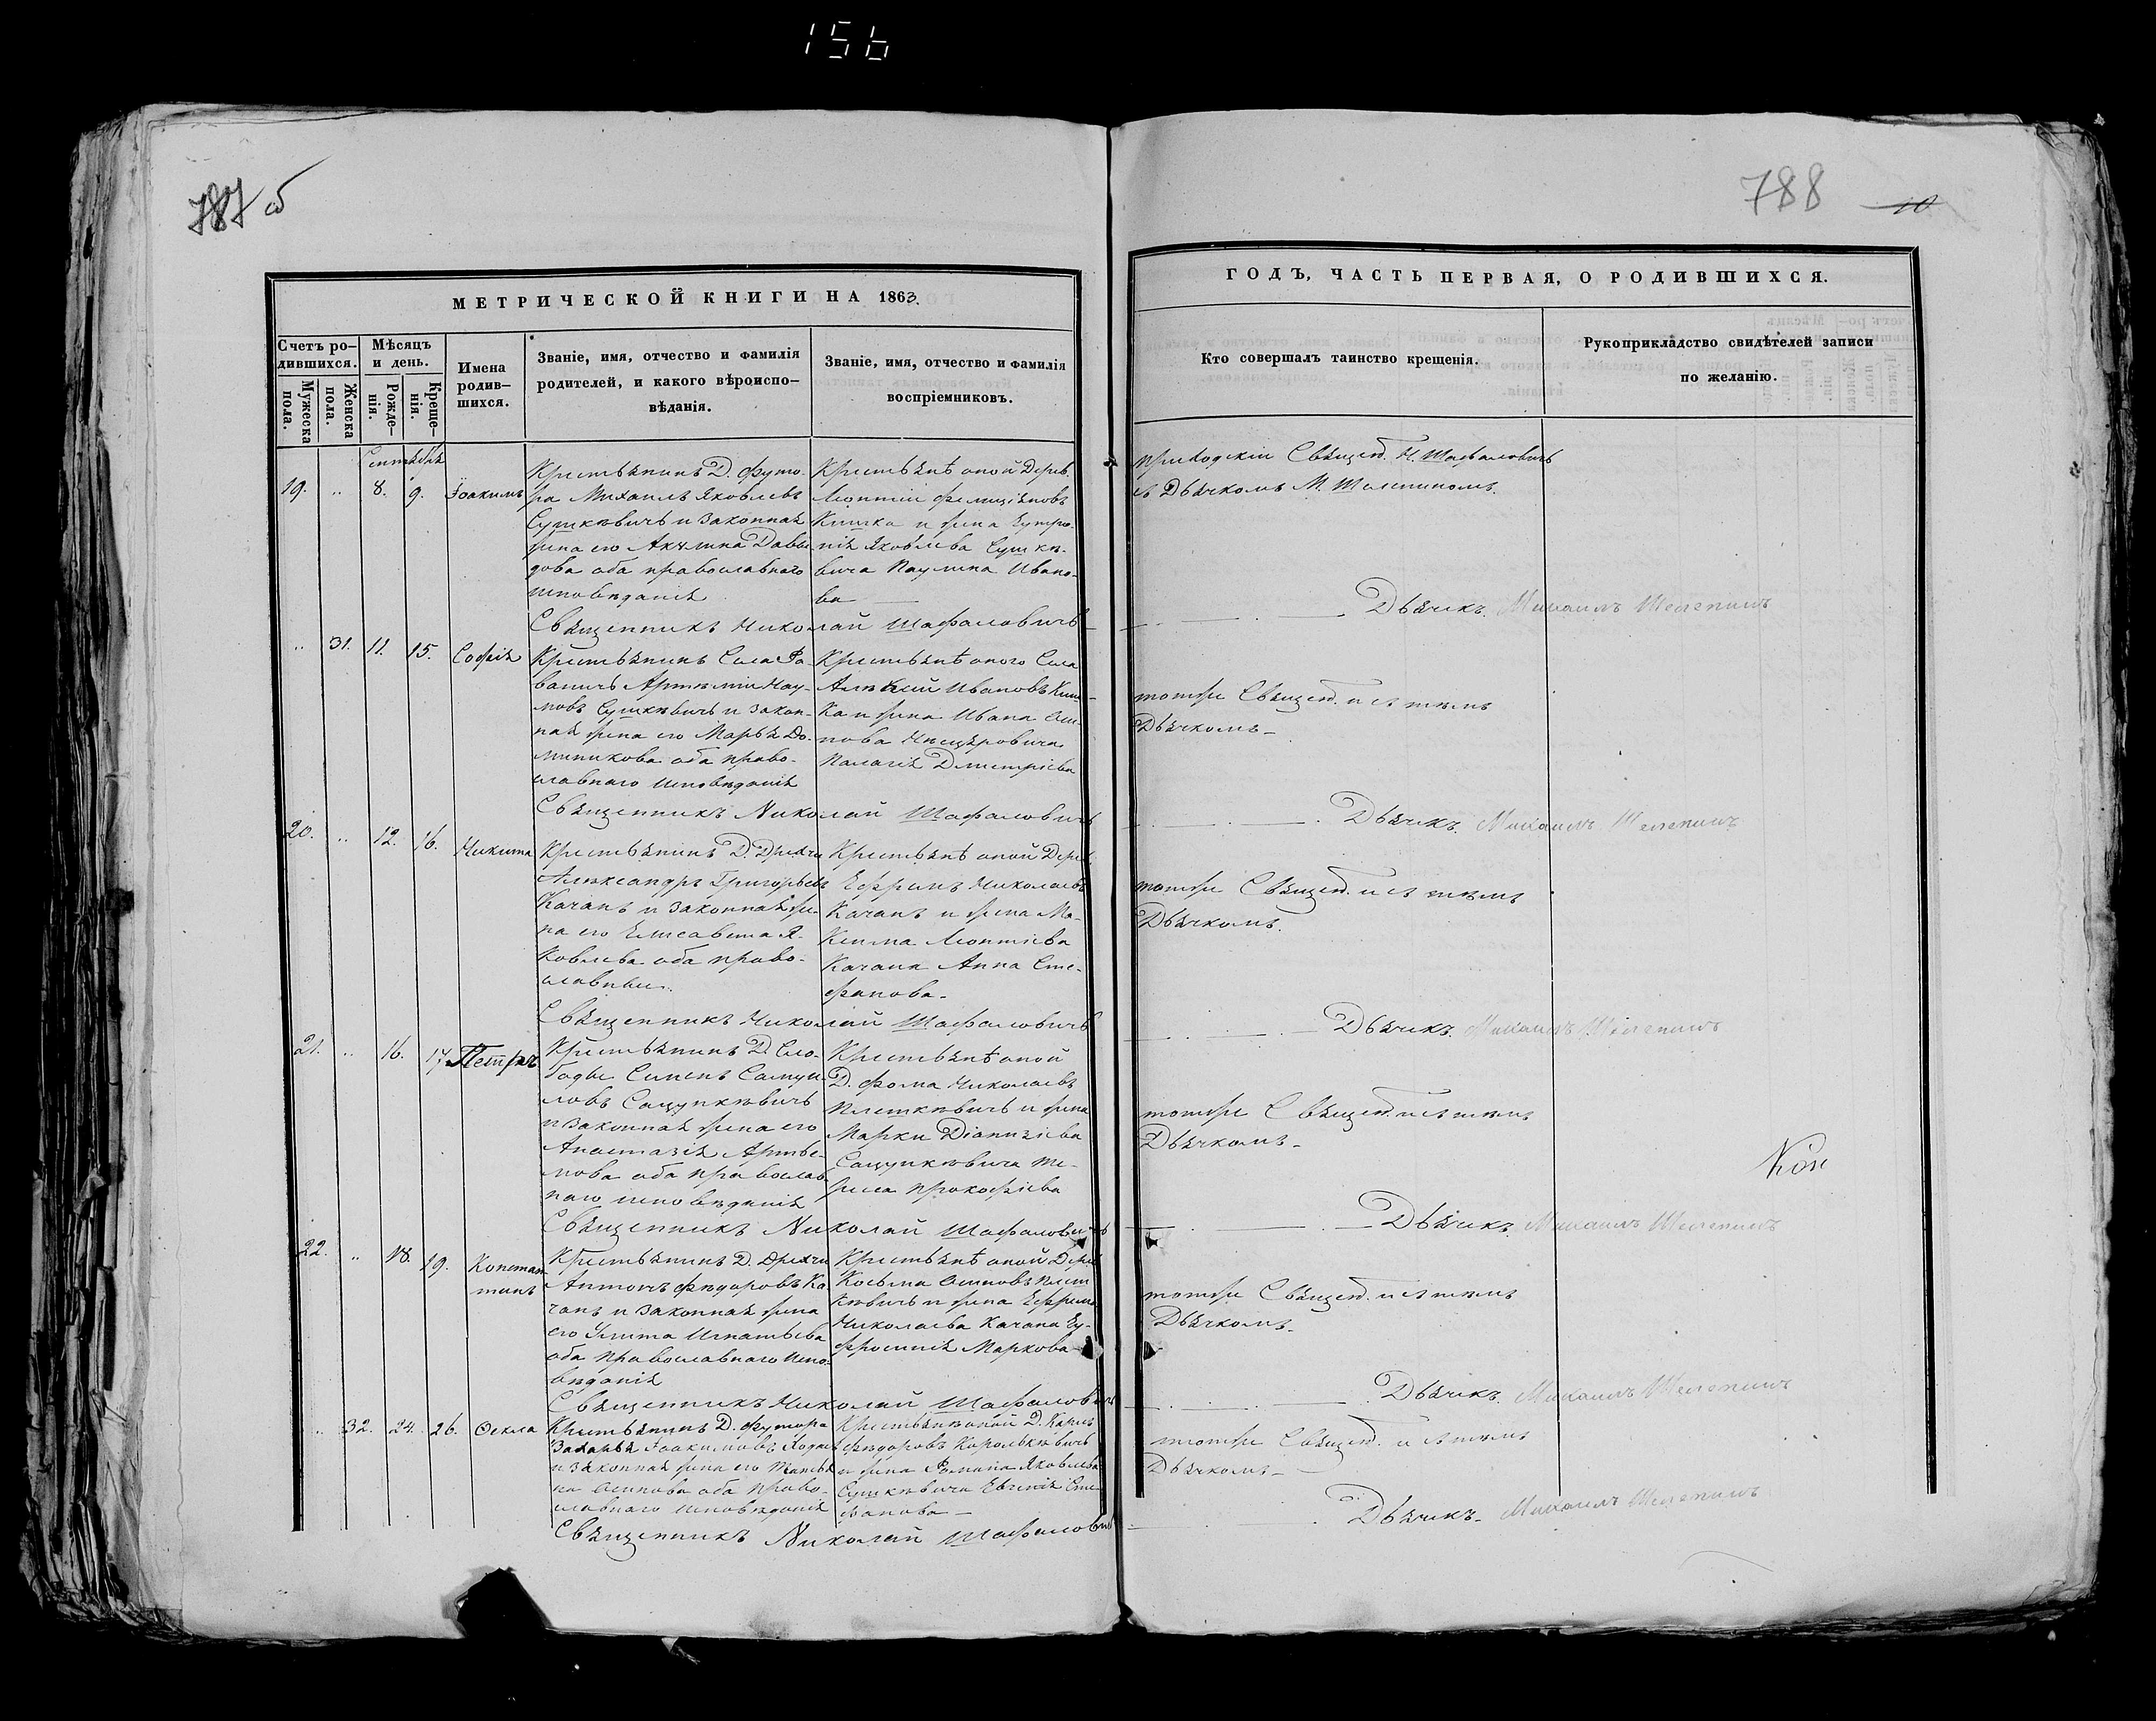 156
787 об
788 10
МЕТРИЧЕСКОЙ КНИГИ НА 1863.
Счетъ ро-
дившихся.
Мужеска
пола.
Женска
пола.
Мѣсяцъ
и день.
Рожде-
нія.
Креще-
нія.
Имена
родив-
шихся.
Званіе, имя, отчество и фамилія
родителей, и какого вѣроиспо-
вѣданія.
Званіе, имя, отчество и фамилія
воспріемниковъ.
ГОДЪ, ЧАСТЬ ПЕРВАЯ, О РОДИВШИХСЯ.
Кто совершалъ таинство крещенія.
Рукоприкладство свидѣтелей записи
по желанію.
Сентября
19. „ 8. 9. Іоакимъ
Крестьянинъ Д. Футо-
ра Михаилъ Яковлевъ
Сушкѣвичь и законная
жена его Акулина Давы
дова оба православнаго
исповѣданія
Крестьянѣ оной Дерев.
Леонтій
Кишка и жена Еутро-
пія Яковлева Сушкѣ-
вича Паулина Ивано-
ва
приходскій Священ. Н. Шафаловичь
съ Дьячкомъ М. Шелепиномъ.
Священникъ Николай Шафаловичь
Дьячкъ. Михаилъ Шелепинъ
„ 31. 11. 15. Софія
Крестьянинъ Села Ро-
ваничь Артѣмій Нау-
мовъ Сушкѣвичь и закон-
ная жена его Марья До-
миникова оба право-
славнаго исповѣданія
Крестьянѣ оного Села
Алѣксѣй Ивановъ Киш-
ка и жена Ивана Оси-
пова
Палагія Дмитріева
тотже Священ. и съ тѣмъ
Дьячкомъ
Священникъ Николай Шафаловичь
Дьячкъ. Михаилъ Шелепинъ
20. „ 12. 16. Никита
Крестьянинъ Д. Дрехчи
Алѣксандръ Григорьевъ
Качанъ и законная же-
на его Елисавета Я-
ковлева оба право-
славные.
Крестьянѣ оной Дерев.
Ефримъ Николаевъ
Качанъ и жена Ма-
ксима Леонтіева
Качана Анна Сте-
фанова
тотже Священ. и съ тѣмъ
Дьячкомъ.
Священникъ Николай Шафаловичь
Дьячкъ. Михаилъ Шелепинъ
21. „ 16. 17. Петръ
Крестьянинъ Д. Сло-
боды Симеонъ Самуи-
ловъ Сацункѣвичь
и законная жена его
Анастазія Артѣе-
мова оба православ
наго исповѣданія
Крестьянѣ оной
Д. Фома Николаевъ
Плешкѣвичь и жена
Марки Діонизіева
Сацункѣвича Те-
реса Прокофіева
тотже Священ. и съ тѣмъ
Дьячкомъ
Священникъ Николай Шафаловичь
Дьячкъ. Михаилъ Шелепинъ
22. „ 18. 19. Констан
тинъ
Крестьянинъ Д. Дрехчи
Антонъ Фѣдоровъ Ка
чанъ и законная жена
его Улита Игнатьева
оба православнаго испо-
вѣданія
Крестьянѣ оной Дерев
Косьма Осиповъ Плеш
кѣвичь и жена Ефрима
Николаева Качана Еу-
фросинія Маркова
тотже Священ. и съ тѣмъ
Дьячкомъ.
Священникъ Николай Шафаловичь
Дьячкъ. Михаилъ Шелепинъ
„ 32. 24. 26. Ѳекла
Крестьянинъ Д. Футора
Захарья Іоакимовъ
и законная жена его Татья
на Осипова оба право-
славнаго исповѣданія
Крестьянѣ оной Д. Карлъ
Фѣдоровъ Королькѣвичь
и жена Романа Яковлева
Сушкѣвича Евгенія Сте-
фанова
тотже Священ. и съ тѣмъ
Дьячкомъ
Священникъ Николай Шафаловичь
Дьячкъ. Михаилъ Шелепинъ